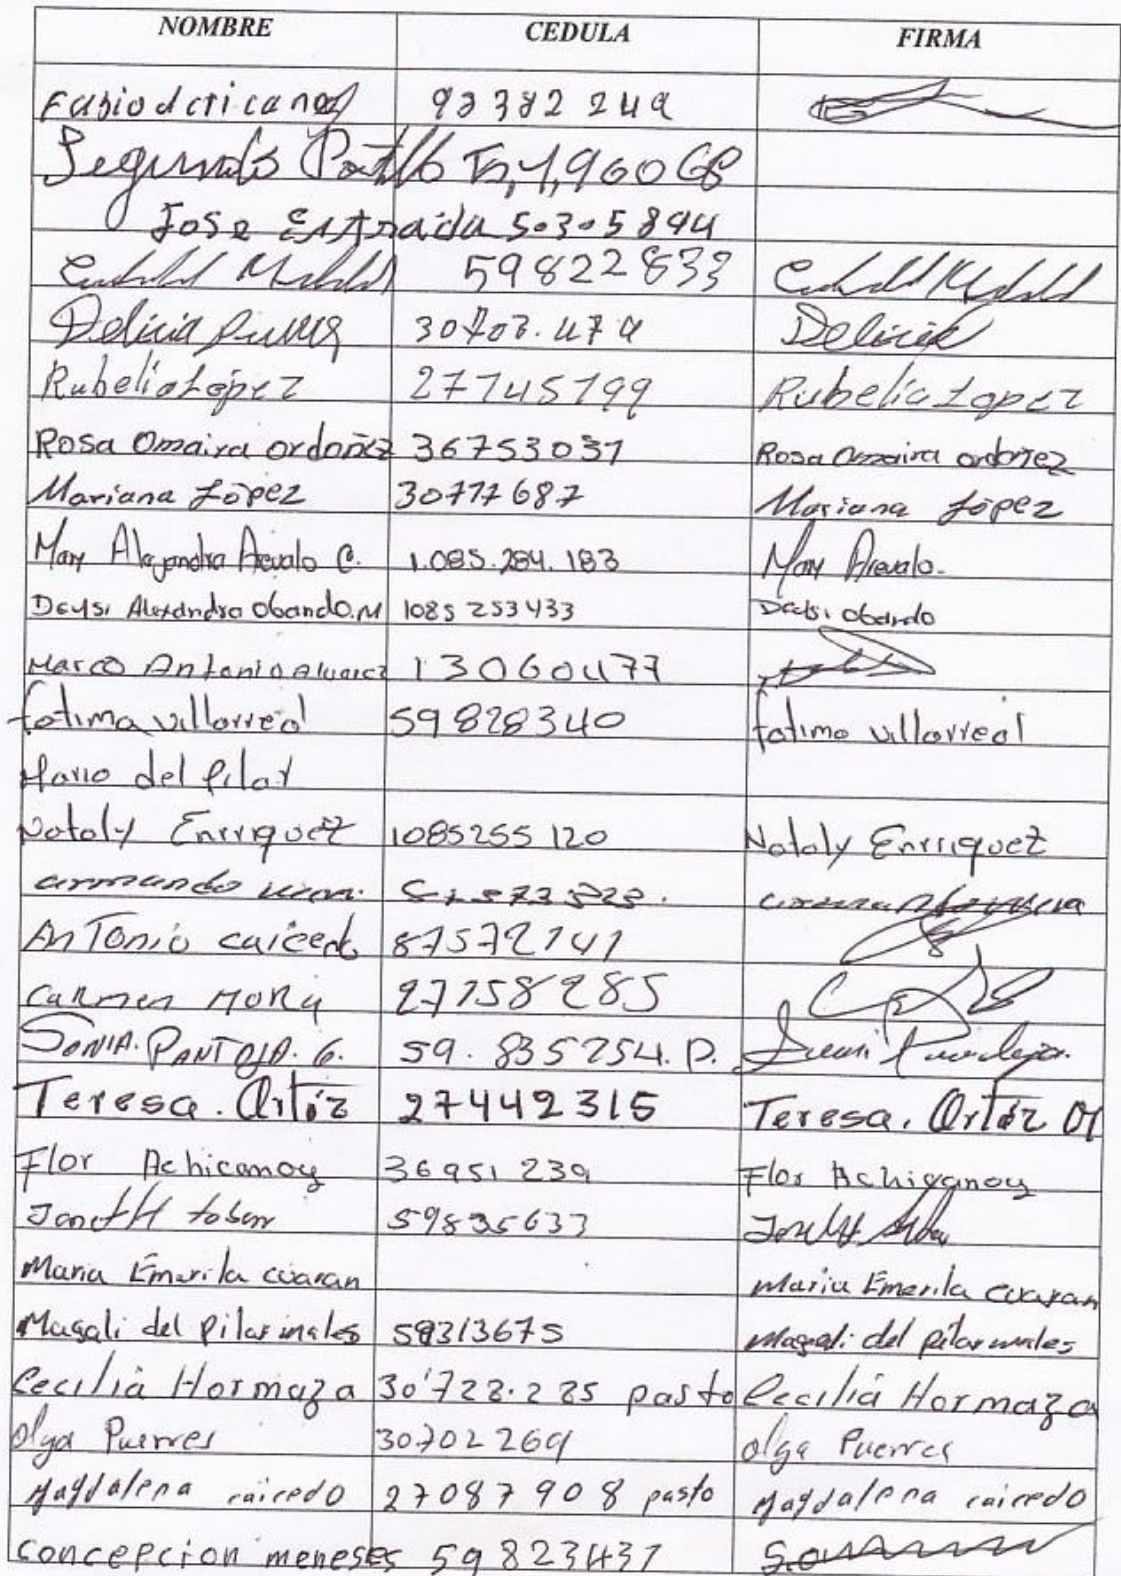 NOMBRE CEDULA FIRMA
Segundo
Jose Estrada 5.305894
59822833
Delicia 30703.479 Delicia
Rubelia López 27745199 Rubelia Lopez
Rosa Omaira ordoñez 36753037 Rosa Omaira ordoñez
Mariana López 30717687 Mariana López
Mary Alejandra Arevalo C. 1.085.284.183 Mary Arevalo.
Deysi Alexandra Obando.M 1085 253433 Deysi Obando
Marco Antonio Alvarez 13060477
fatima villarreal 59828340 fatima villarreal
Mario del Pilar
Nataly Enrriquez 1085255 120 Nataly Enrriquez
armando
AnTonio caicedo 87572141
Carmen MORA 27158285
SONIA. PANTOJA. G. 59. 835254. P.
Teresa. Ortíz 27442315 Teresa. Ortíz Ol
Flor Achicanoy 36951 239 Flor Achicanoy
Janeth tobar 59835633
Maria Emerila cuaran Maria Emerila cuaran
Magali del Pilar inales 59313675 Magali del Pilar inales
Cecilia Hormaza 30'722.225 pasto Cecilia Hormaza
Olga Puerres 30702269 olga Puerres
Magdalena caicedo 27087908 pasto Magdalena caicedo
concepcion meneses 59823437